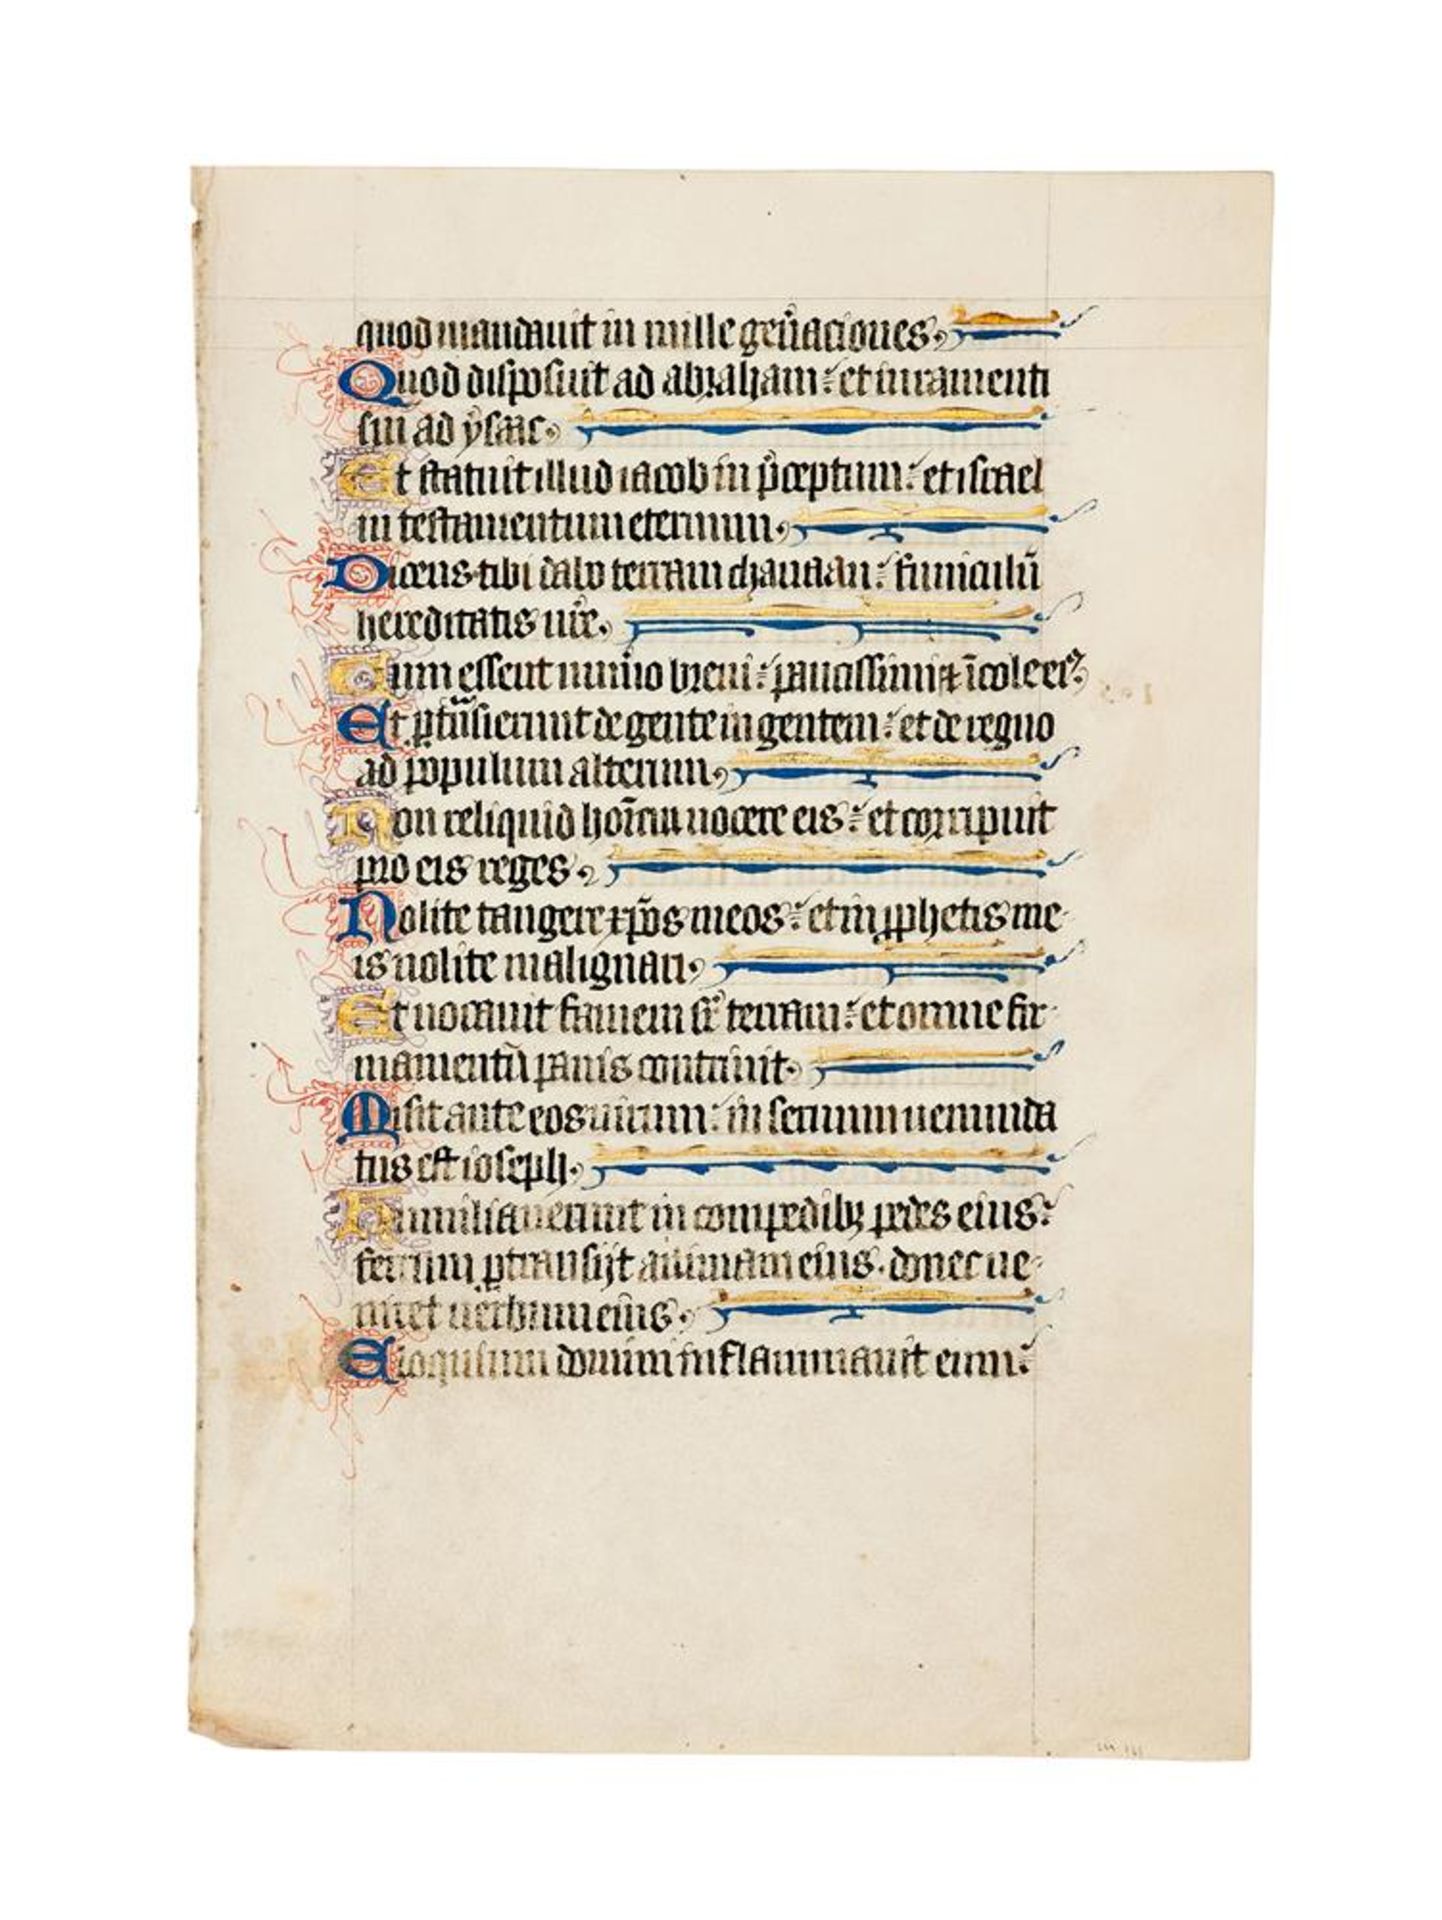 quod mandauit in mille gen̄aciones.
Quod disposuit ad abraham: et iuramenti
sui ad ysaac.
Et statuit illud iacob in p̄ceptum: et israel
in testamentum eternum.
Dicens tibi dabo terram chanaan: funiculū
hereditatis ur̄e.
Cum essent num̄o breui: paucissimi & īcole eiꝰ.
Et ꝑtᷓsierunt de gente in gentem: et de regno
ad populum alterum.
Non reliquid hoīem nocere eis: et corripuit
pro eis reges.
Nolite tangere xp̄os meos: et in ꝓphetis me-
is nolite malignari.
Et uocauit famem sr̄ terram: et omne fir-
mamentū panis contriuit.
Misit ante eos uirum: in seruum uenunda
tus est ioseph.
Humiliauerunt in compedibꝫ pedes eius:
ferrum ꝑtransijt animam eius. donec ue-
niret uerbum eius.
Eloquium domini inflammauit eum: